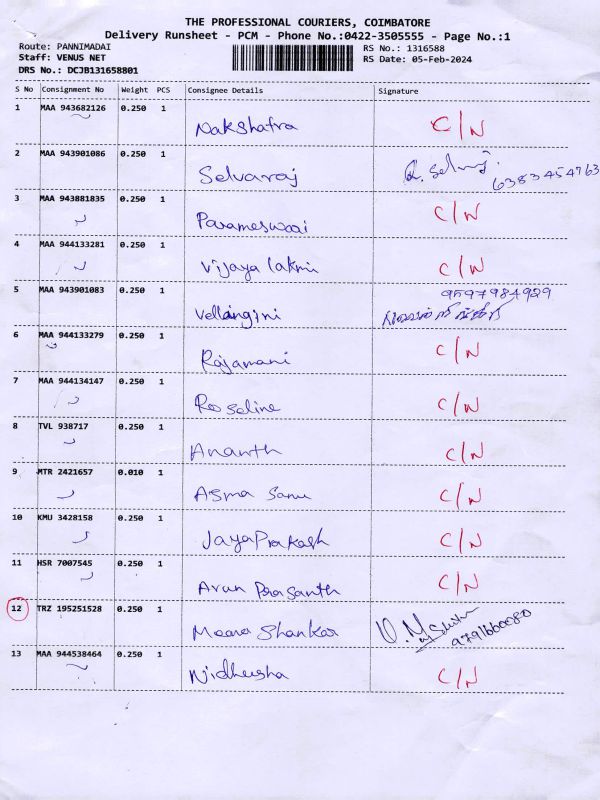 THE PROFESSIONAL COURIERS, COIMBATORE
Delivery Runsheet - PCM - Phone No.:0422-3505555 - Page No.:1
Route: PANNIMADAI RS No.: 1316588
Staff: VENUS NET RS Date: 05-Feb-2024
DRS No.: DCJB131658801
S No Consignment No Weight PCS Consignee Details Signature
1 MAA 943682126 0.250 1 Nakshatra C/N
2 MAA 943901086 0.250 1 Selvaraj 6383454763
3 MAA 943881835 0.250 1 Parameswari C/N
4 MAA 944133281 0.250 1 Vijaya lakmi C/N
5 MAA 943901083 0.250 1 Vellangini 9597984929
6 MAA 944133279 0.250 1 Rajamani C/N
7 MAA 944134147 0.250 1 Roseline C/N
8 TVL 938717 0.250 1 Ananth C/N
9 MTR 2421657 0.010 1 Asma Sanu C/N
10 KMU 3428158 0.250 1 Jaya Prakash C/N
11 HSR 7007545 0.250 1 Arun Prasanth C/N
12 TRZ 195251528 0.250 1 Meera Shankar 9791660080
13 MAA 944538464 0.250 1 Nidheesha C/N